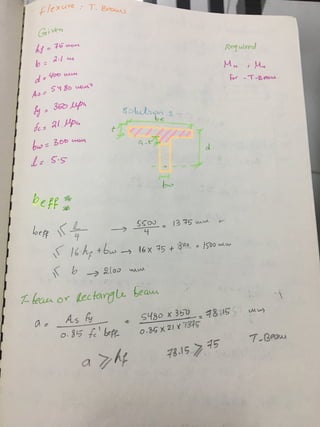 Flexure : T. Beams
Given
hf = 75 mm
b = 2.1 m
d = 400 mm
As = 5480 mm²
fy = 350 Mpa
fc = 21 Mpa
bw = 300 mm
l = 5.5
Required
Mn , Mu
for - T-Beam
Solution :-
be
t
a
d
bw
beff :-
beff ≤ l/4 → 5500/4 = 1375 mm
≤ 16 hf + bw → 16 x 75 + 300 = 1500 mm
≤ b → 2100 mm
T-beam or Rectangle beam
a = As fy / 0.85 fc' beff = 5480 x 350 / 0.85 x 21 x 1375 = 78.15 mm
a ⩾ hf 78.15 ⩾ 75 T-Beam